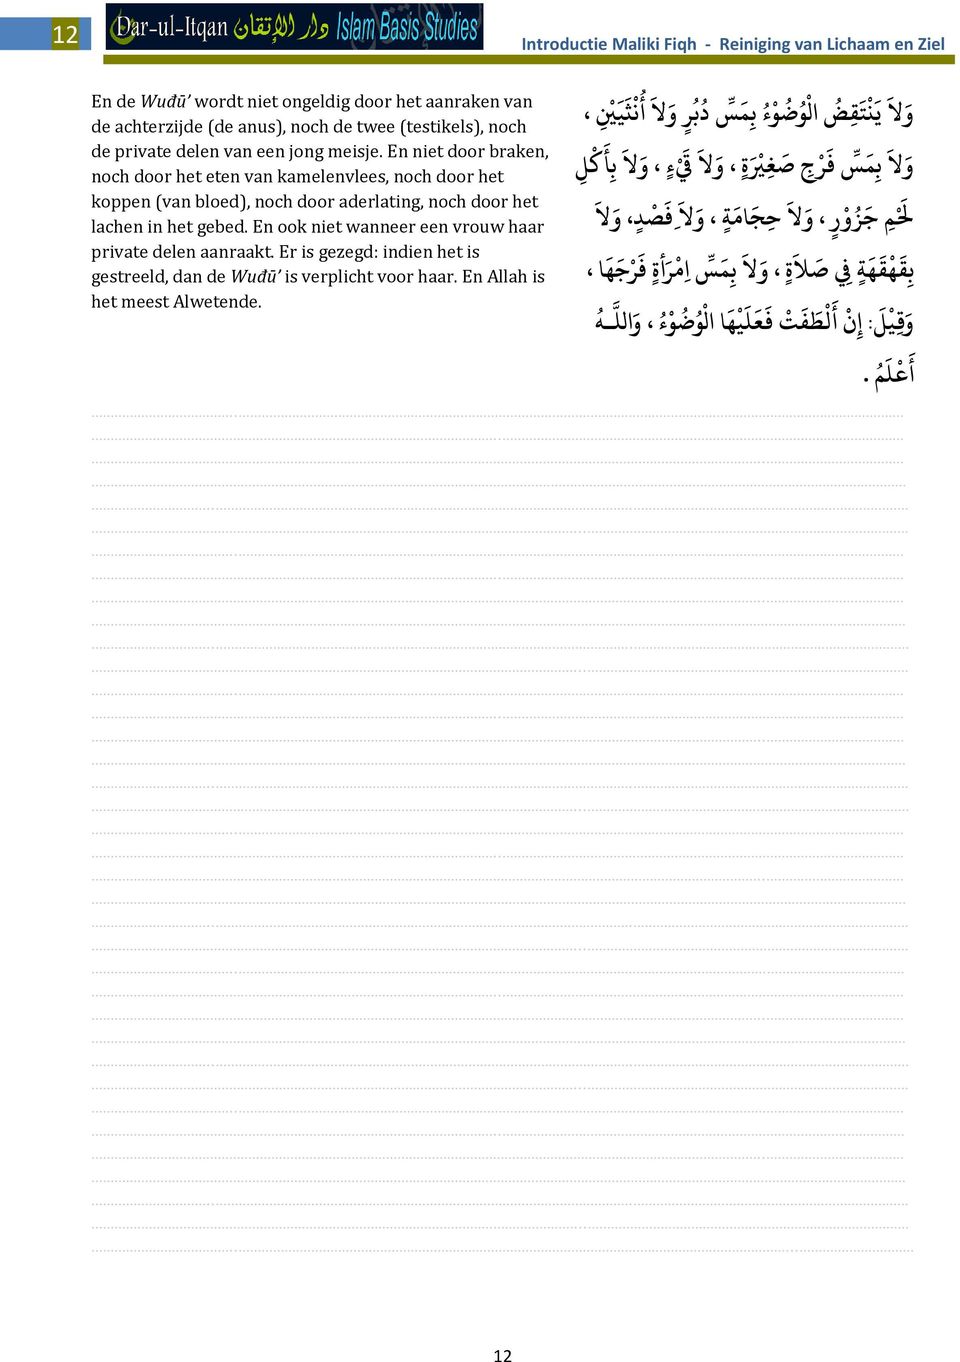 12
Dar-ul-Itqan دار الإتقان Islam Basis Studies
Introductie Maliki Fiqh - Reiniging van Lichaam en Ziel
En de Wuđū’ wordt niet ongeldig door het aanraken van
de achterzijde (de anus), noch de twee (testikels), noch
de private delen van een jong meisje. En niet door braken,
noch door het eten van kamelenvlees, noch door het
koppen (van bloed), noch door aderlating, noch door het
lachen in het gebed. En ook niet wanneer een vrouw haar
private delen aanraakt. Er is gezegd: indien het is
gestreeld, dan de Wuđū’ is verplicht voor haar. En Allah is
het meest Alwetende.
وَلاَ يَنْتَقِضُ الْوُضُوْءُ بِمَسِّ دُبُرٍ وَلاَ أُنْثَيَيْنِ ،
وَلاَ بِمَسِّ فَرْجِ صَغِيْرَةٍ ، وَلاَ قَيْءٍ ، وَلاَ بِأَكْلِ
لَحْمِ جَزُوْرٍ ، وَلاَ حِجَامَةٍ ، وَلاَِ فَصْدٍ، وَلاَ
بِقَهْقَهَةٍ فِي صَلاَةٍ ، وَلاَ بِمَسِّ اِمْرَأةٍ فَرْجَهَا ،
وَقِيْلَ: إِنْ أَلْطَفَتْ فَعَلَيْهَا الْوُضُوْءُ ، وَاللَّـهُ
أَعْلَمُ .
12